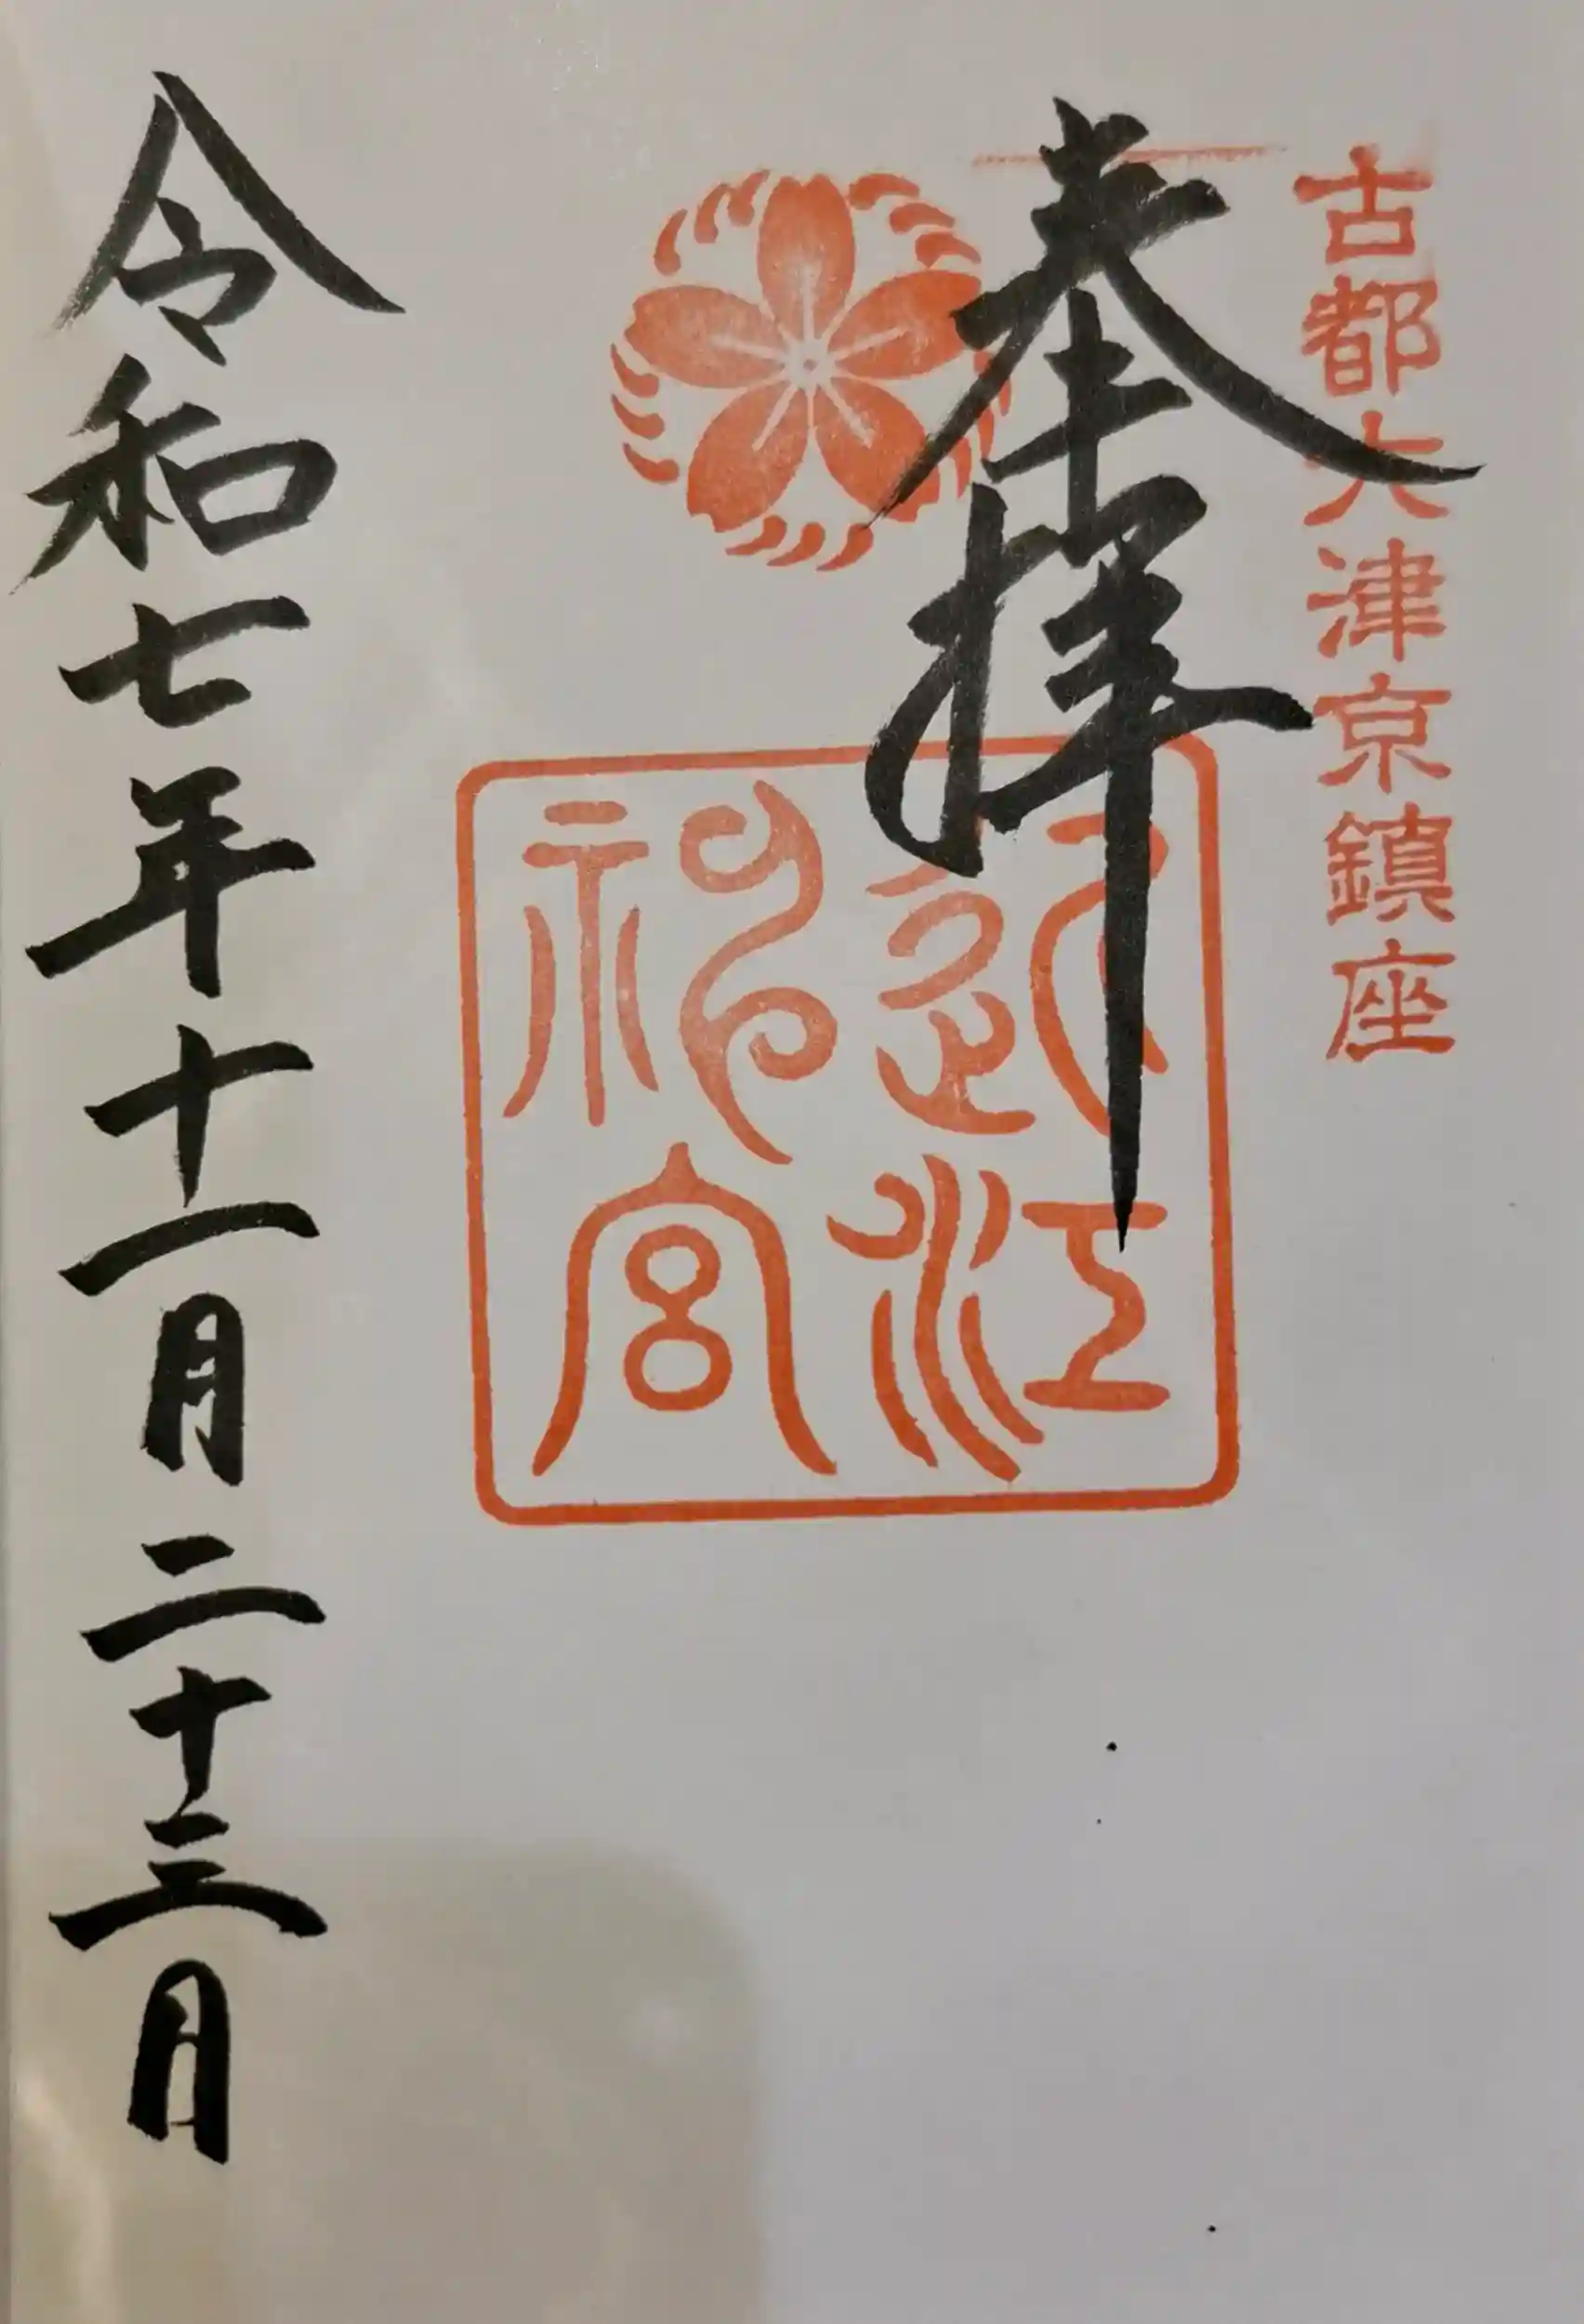 古都大津京鎮座
奉拝
近江
神宮
令和七年十一月二十三日